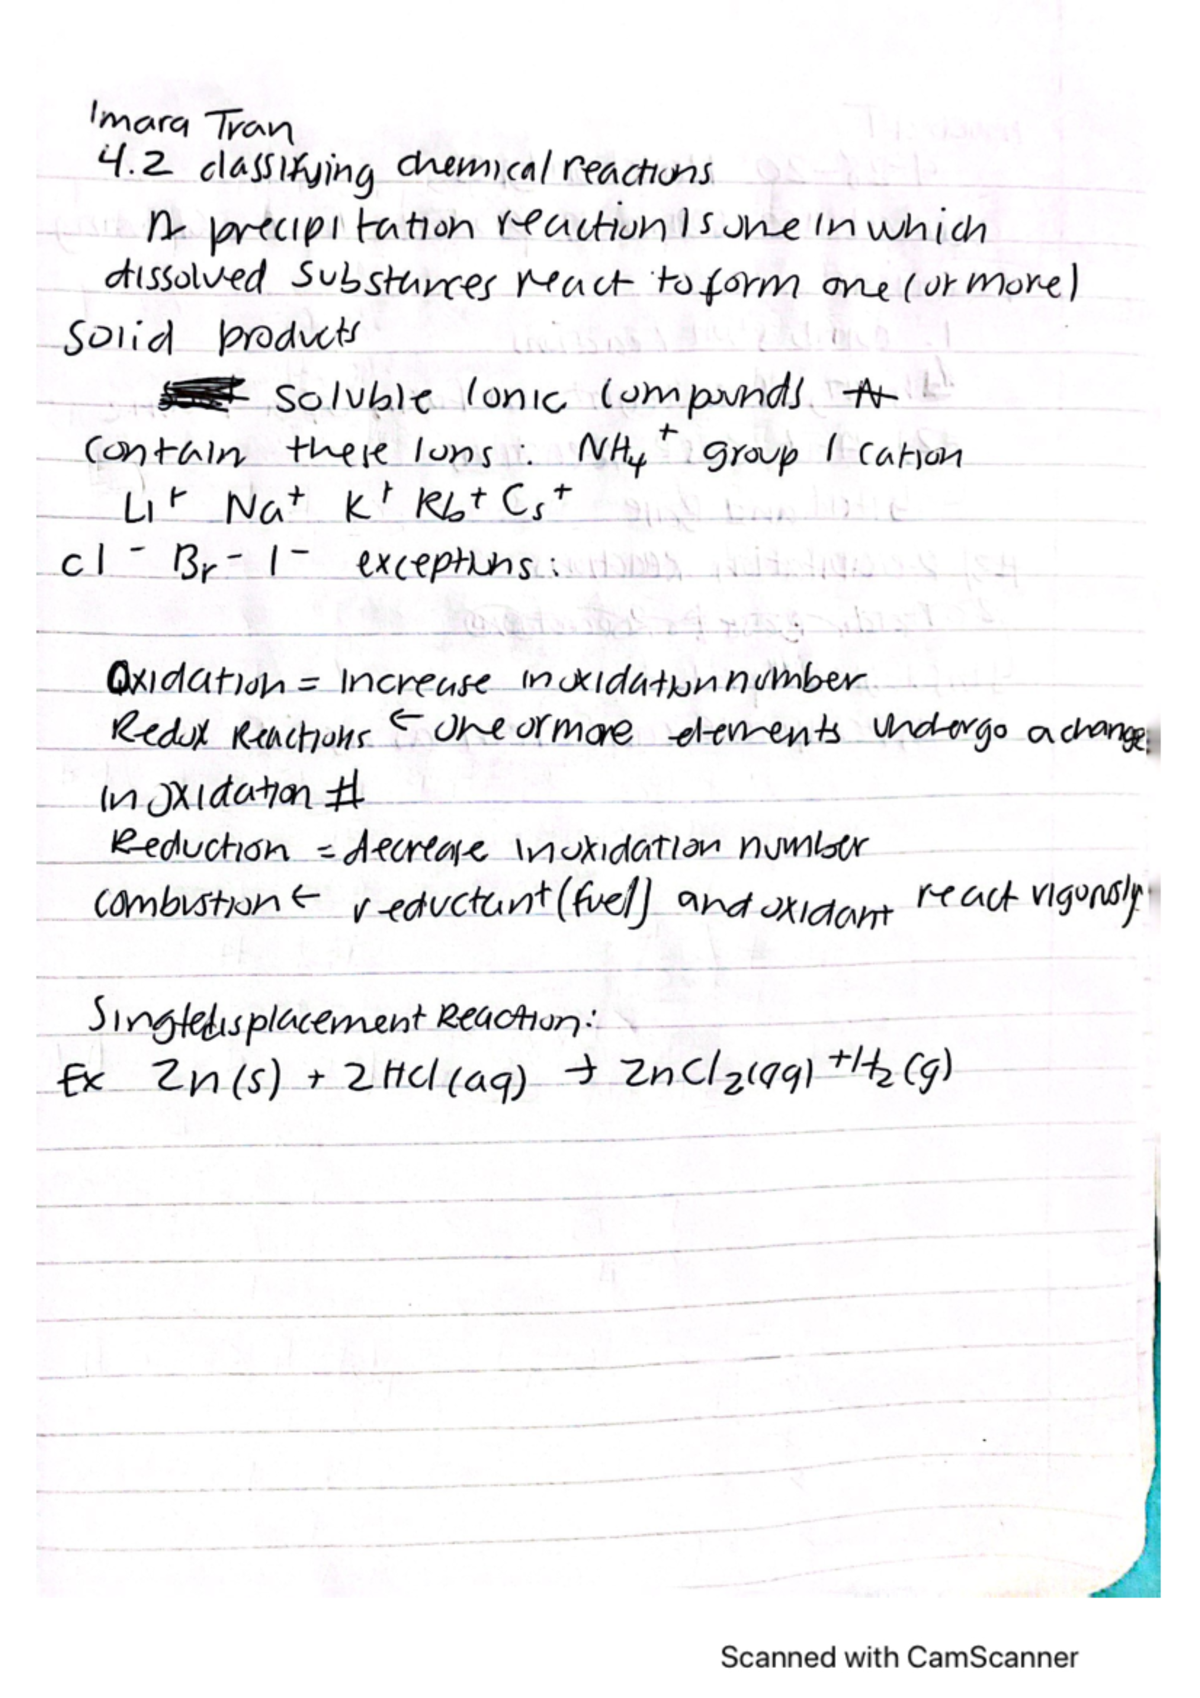 Imara Tran
4.2 classifying chemical reactions
A precipitation reaction is one in which
dissolved substances react to form one (or more)
solid products
soluble ionic compounds
contain these ions: NH₄⁺ group 1 cation
Li⁺ Na⁺ K⁺ Rb⁺ Cs⁺
cl⁻ Br⁻ I⁻ exceptions:
Oxidation = increase in oxidation number
Redox Reactions ← one or more elements undergo a change
in oxidation #
Reduction = decrease in oxidation number
combustion ← reductant (fuel) and oxidant react vigorously
Single displacement Reaction:
Ex Zn(s) + 2HCl(aq) → ZnCl₂(aq) + H₂(g)
Scanned with CamScanner